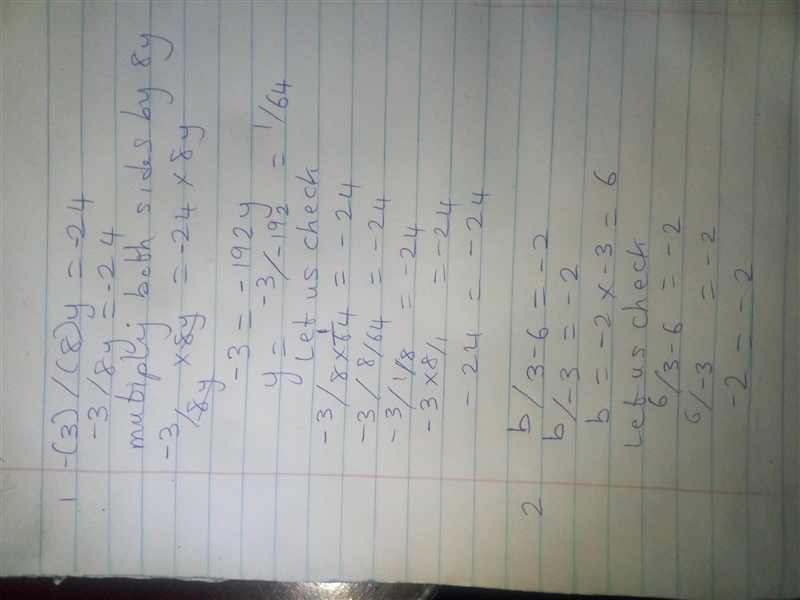 1 -(3)/(8)y = -24
-3/8y = -24
mutiply both sides by 8y
-3/8y × 8y = -24 × 8y
-3 = -192y
y = -3/-192 = 1/64
Let us check
-3/8×1/64 = -24
-3/8/64 = -24
-3/1/8 = -24
-3×8/1 = -24
-24 = -24
2 b/3-6 = -2
b/-3 = -2
b = -2 × -3 = 6
Let us check
6/3-6 = -2
6/-3 = -2
-2 = -2